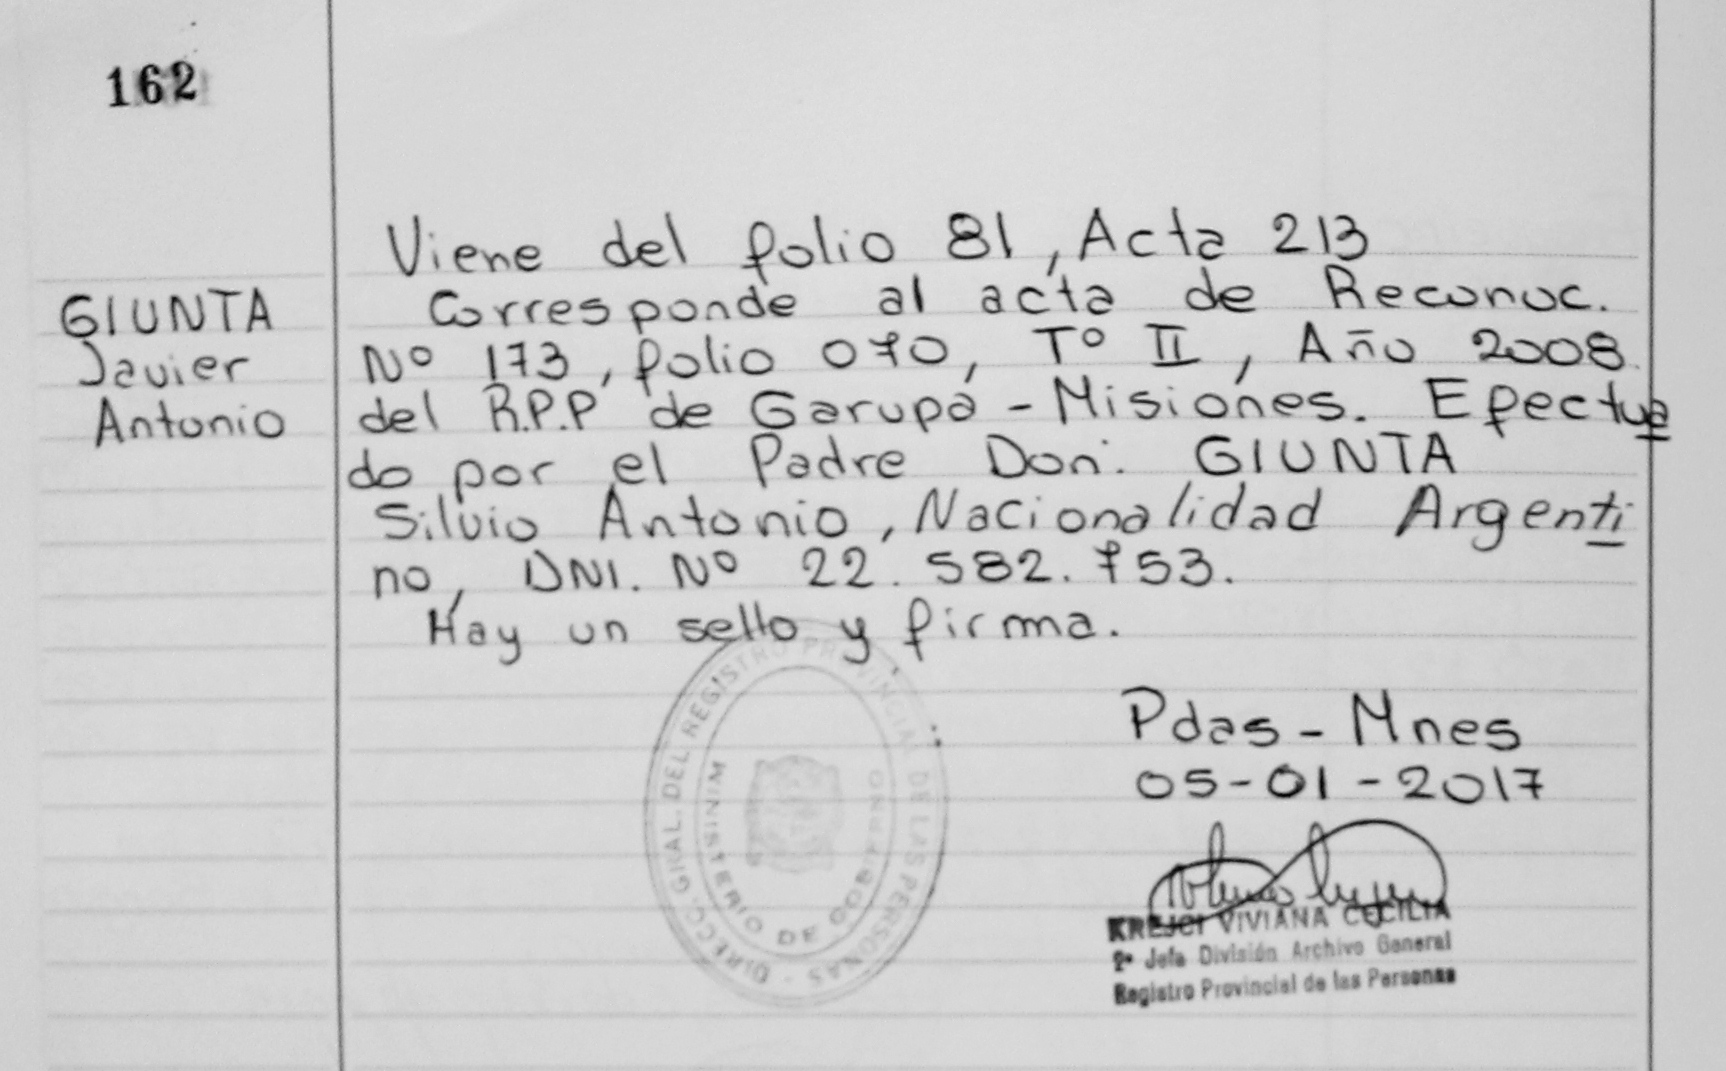 162
GIUNTA
Javier
Antonio
Viene del folio 81, Acta 213
Corresponde al acta de Reconoc.
Nº 173, folio 070, Tº II, Año 2008
del R.P.P de Garupá - Misiones. Efectua
do por el Padre Don: GIUNTA
Silvio Antonio, Nacionalidad Argenti
no, DNI. Nº 22.582.753.
Hay un sello y firma.
DIRECC. GRAL. DEL REGISTRO PROVINCIAL DE LAS PERSONAS -
MINISTERIO DE GOBIERNO
Pdas - Mnes
05-01-2017
KREJCI VIVIANA CECILIA
2º Jefa División Archivo General
Registro Provincial de las Personas